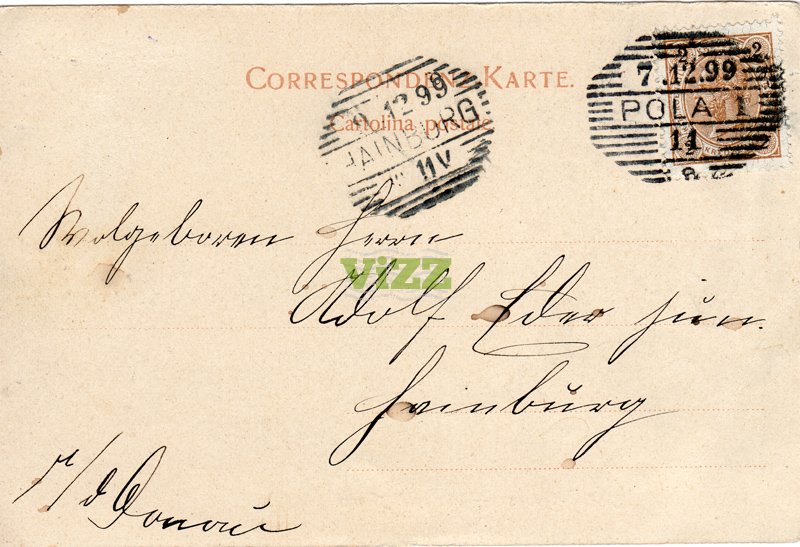 CORRESPONDENZ-KARTE.
Cartolina postale
9.12.99
HAINBURG
11V
2 2
7.12.99
POLA 1
11
Wolgeboren Herrn
ViZZ
Adolf Eder jun.
Hainburg
a/d Donau